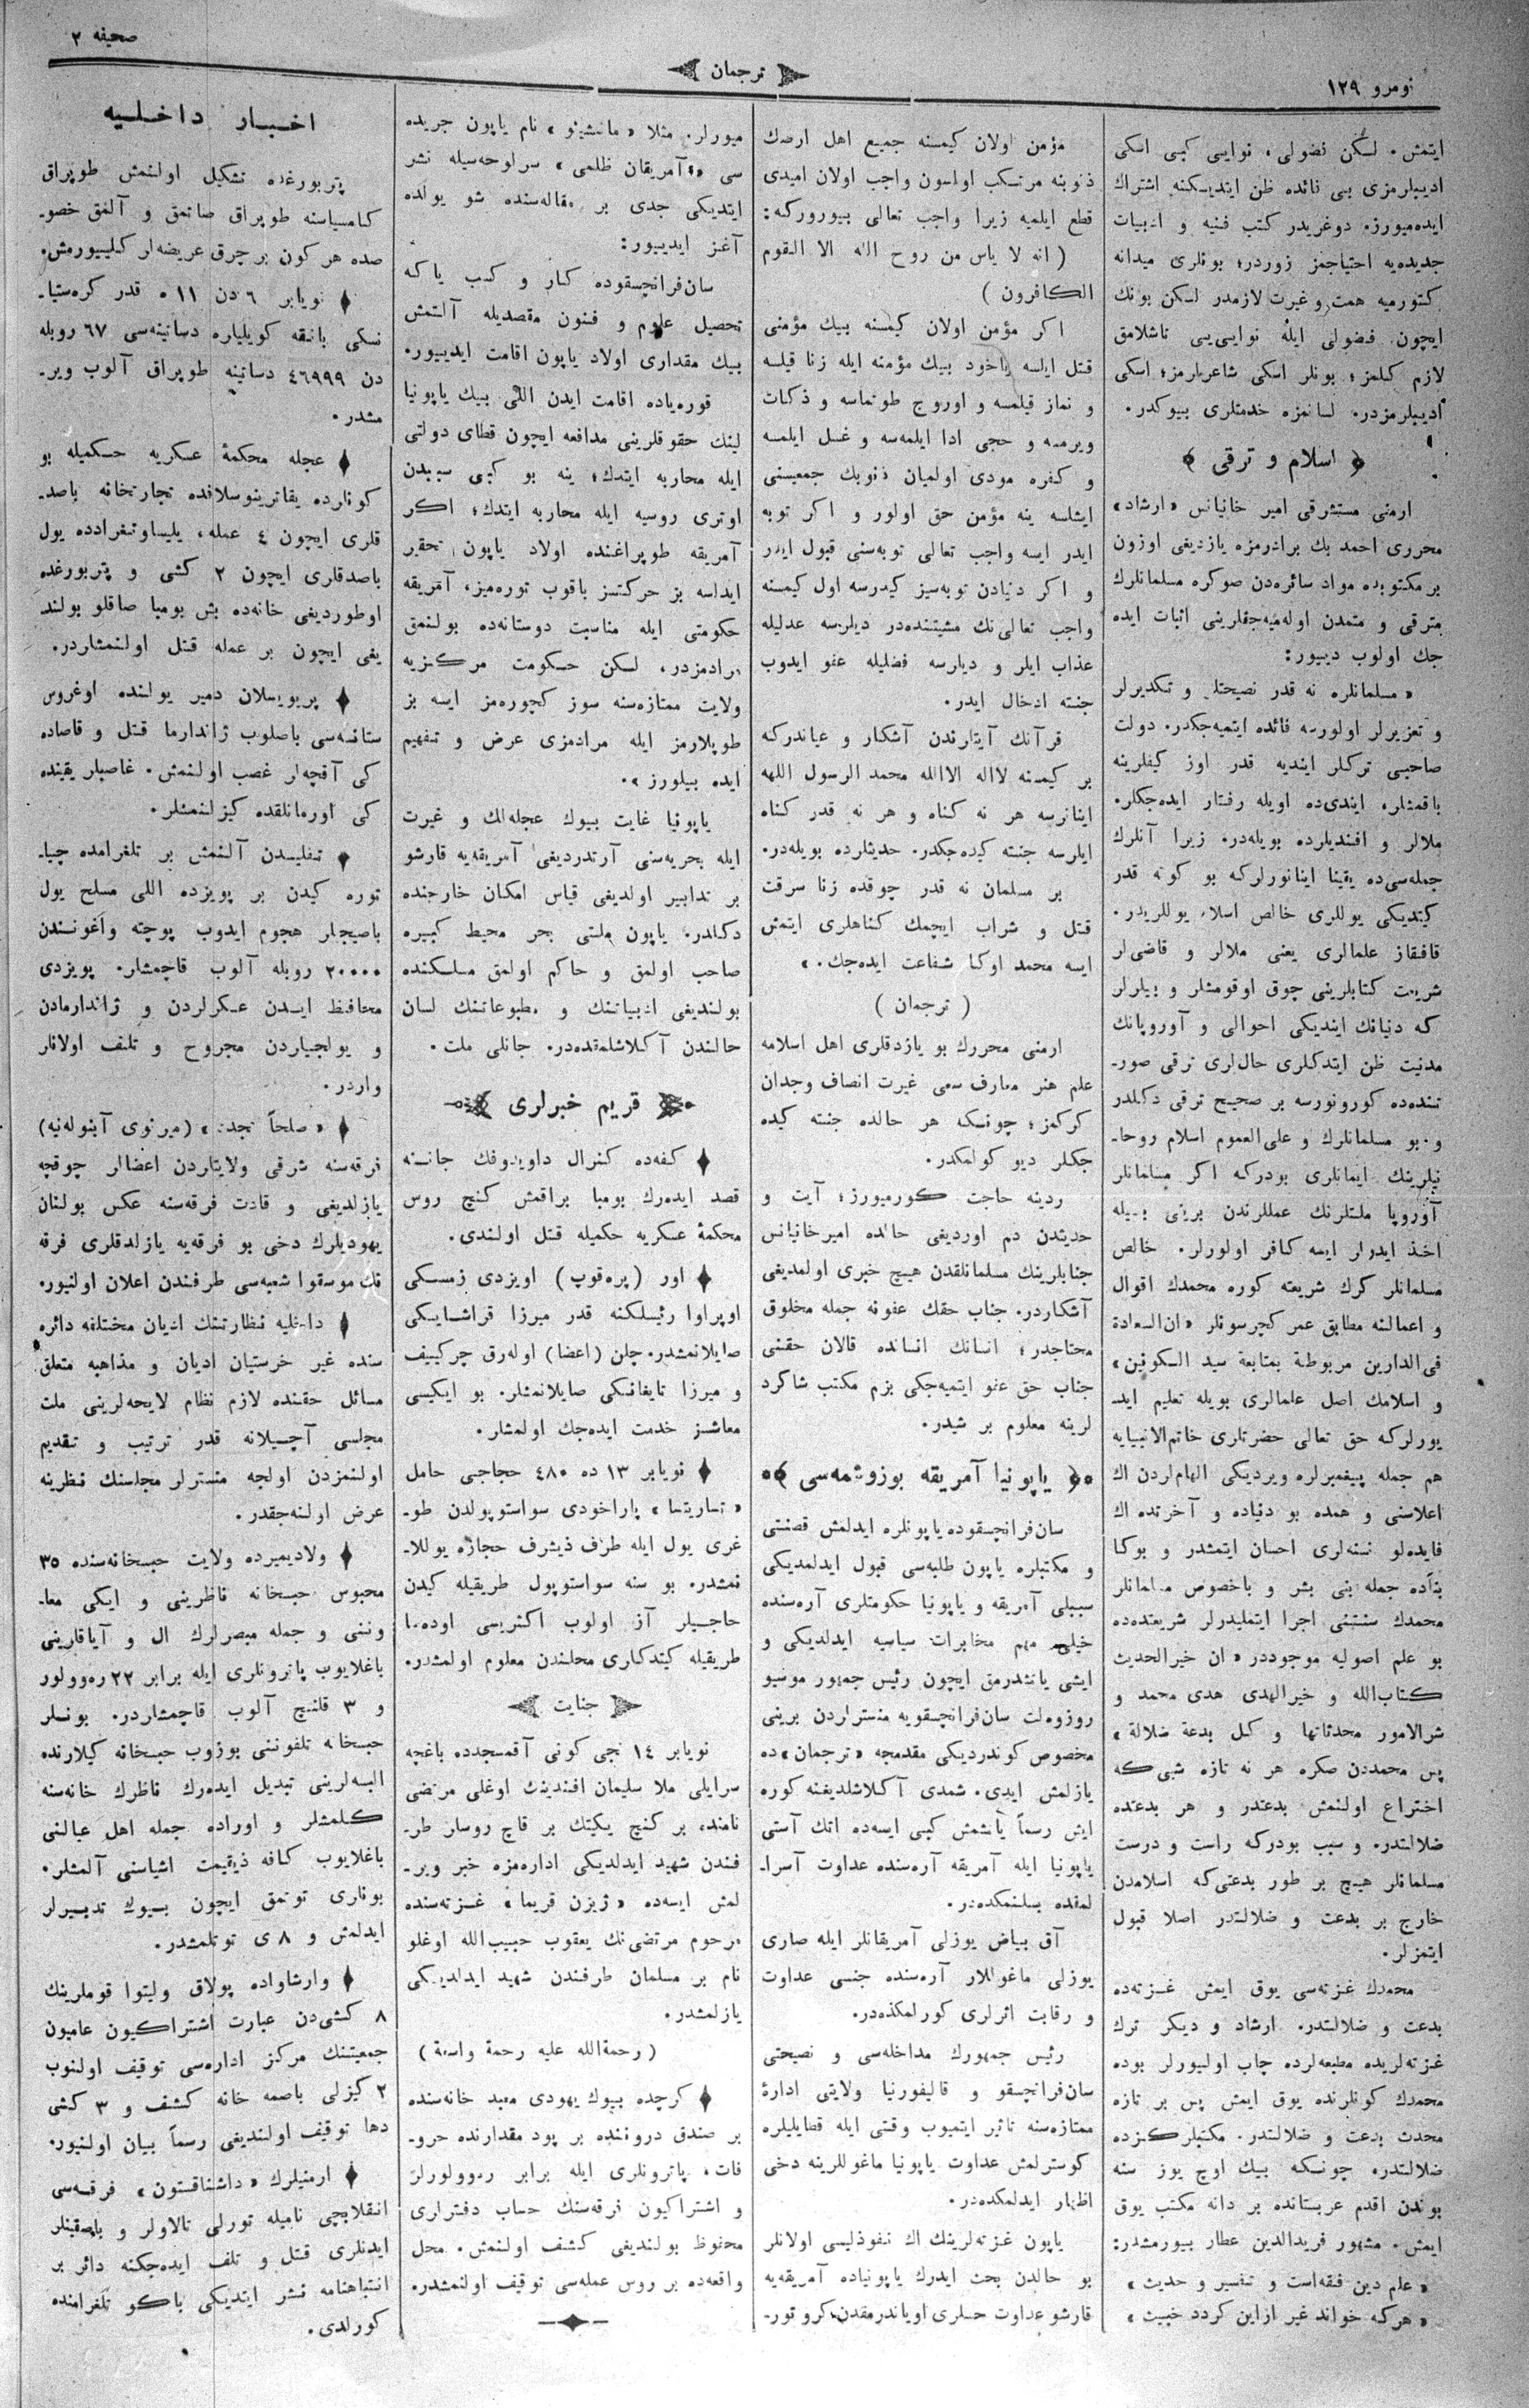 نومرو ١٢٩
ترجمان
صحیفه ٢
ایتمش. لکن فضولی، نوایی کبی اسکی
ادیبلرمزی بی فائده ظن ایتدیکنه اشتراك
ایده‌میورز. دوغریدر کتب فنیه و ادبیات
جدیده‌یه احتیاجمز زوردر؛ بونلری میدانه
کتورمیه همت و غیرت لازمدر لکن بونك
ایچون فضولی ایله نوایی‌یی تاشلامق
لازم کلمز؛ بونلر اسکی شاعرلرمز؛ اسکی
ادیبلرمزدر. لسانمزه خدمتلری بیوکدر.
﴿ اسلام و ترقی ﴾
ارمنی مستشرقی امیر خانیانس «ارشاد»
محرری احمد بك برادرمزه یازدیغی اوزون
بر مکتوبده مواد سائره‌دن صوکره مسلمانلرك
مترقی و متمدن اوله‌میه‌جقلرینی اثبات ایده
جك اولوب دییور:
« مسلمانلره نه قدر نصیحتلر و تکدیرلر
و تعزیرلر اولورسه فائده ایتمیه‌جکدر. دولت
صاحبی ترکلر ایندیه قدر اوز کیفلرینه
باقمشلر، ایندی‌ده اویله رفتار ایده‌جکلر.
ملالر و افندیلرده بویله‌در. زیرا آنلرك
جمله‌سی‌ده یقینا اینانورلرکه بو کونه قدر
کیتدیکی یوللری خالص اسلام یوللریدر.
قافقاز علمالری یعنی ملالر و قاضی‌لر
شریعت کتابلرینی چوق اوقومشلر و بیلرلر
که دنیانك ایندیکی احوالی و آوروپانك
مدنیت ظن ایتدکلری حال‌لری ترقی صور-
تنده‌ده کورونورسه بر صحیح ترقی دکلدر
و بو مسلمانلرك و علی‌العموم اسلام روحا-
نیلرینك ایمانلری بودرکه اکر مسلمانلر
آوروپا ملتلرنك عمللرندن برینی بیله
اخذ ایدرلر ایسه کافر اولورلر. خالص
مسلمانلر کرك شریعته کوره محمدك اقوال
و اعمالنه مطابق عمر کچرسونلر «ان‌السعادة
فی‌الدارین مربوطة بمتابعة سید الکونین»
و اسلامك اصل علمالری بویله تعلیم ایده
یورلرکه حق تعالی حضرتلری خاتم‌الانبیایه
هم جمله پیغمبرلره ویردیکی الهام‌لردن اك
اعلاسنی و همده بو دنیاده و آخرتده اك
فایده‌لو نسنه‌لری احسان ایتمشدر و بوکا
بناًده جمله بنی بشر و باخصوص مسلمانلر
محمدك سنتنی اجرا ایتملیدرلر شریعتده‌ده
بو علم اصولیه موجوددر «ان خیرالحدیث
کتاب‌الله و خیرالهدی هدی محمد و
شرالامور محدثاتها و کل بدعة ضلالة»
پس محمددن صکره هر نه تازه شی‌که
اختراع اولنمش بدعتدر و هر بدعتده
ضلالتدر. و سبب بودرکه راست و درست
مسلمانلر هیچ بر طور بدعتی‌که اسلامدن
خارج بر بدعت و ضلالتدر اصلا قبول
ایتمزلر.
محمدك غزته‌سی یوق ایمش غزته‌ده
بدعت و ضلالتدر. ارشاد و دیکر ترك
غزته‌لریده مطبعه‌لرده چاپ اولیورلر بوده
محمدك کونلرنده یوق ایمش پس بر تازه
محدث بدعت و ضلالتدر. مکتبلرکزده
ضلالتدر. چونکه بیك اوچ یوز سنه
بوندن اقدم عربستانده بر دانه مکتب یوق
ایمش. مشهور فریدالدین عطار بیورمشدر:
« علم دین فقه‌است و تفسیر و حدیث »
« هرکه خواند غیر ازاین کردد خبیث »
مؤمن اولان کیمسنه جمیع اهل ارضك
ذنوبنه مرتکب اولسون واجب اولان امیدی
قطع ایلمیه زیرا واجب تعالی بیورورکه:
( انه لا یاس من روح الله الا القوم
الکافرون )
اکر مؤمن اولان کیمسنه بیك مؤمنی
قتل ایلسه یاخود بیك مؤمنه ایله زنا قیلسه
و نماز قیلمسه و اوروج طوتماسه و ذکات
ویرمسه و حجی ادا ایلمه‌سه و غسل ایلمسه
و کفره مودی اولمیان ذنوبك جمعیسنی
ایشلسه ینه مؤمن حق اولور و اکر توبه
ایدر ایسه واجب تعالی توبه‌سنی قبول ایدر
و اکر دنیادن توبه‌سیز کیدرسه اول کیمسنه
واجب تعالی‌نك مشیتنده‌در دیلرسه عدلیله
عذاب ایلر و دیلرسه فضلیله عفو ایدوب
جنته ادخال ایدر.
قرآنك آیتلرندن آشکار و عیاندرکه
بر کیمسنه لااله الاالله محمد الرسول اللهه
اینانرسه هر نه کناه و هر نه قدر کناه
ایلرسه جنته کیده‌جکدر. حدیثلرده بویله‌در.
بر مسلمان نه قدر چوقده زنا سرقت
قتل و شراب ایچمك کناهلری ایتمش
ایسه محمد اوکا شفاعت ایده‌جك. »
( ترجمان )
ارمنی محررك بو یازدقلری اهل اسلامه
علم هنر معارف سعی غیرت انصاف وجدان
کرکمز؛ چونکه هر حالده جنته کیده
جکلر دیو کولمکدر.
ردینه حاجت کورمیورز؛ آیت و
حدیثدن دم اوردیغی حالده امیرخانیانس
جنابلرینك مسلمانلقدن هیچ خبری اولمدیغی
آشکاردر. جناب حقك عفونه جمله مخلوق
محتاجدر؛ انسانك انسانده قالان حقنی
جناب حق عفو ایتمیه‌جکی بزم مکتب شاگرد
لرینه معلوم بر شیدر.
﴿ یاپونیا آمریقه بوزوشمه‌سی ﴾
سان‌فرانچسقوده یاپونلره ایدلمش قصنتی
و مکتبلره یاپون طلبه‌سی قبول ایدلمدیکی
سببلی آمریقه و یاپونیا حکومتلری آره‌سنده
خیلی مهم مخابرات سیاسیه ایدلدیکی و
ایشی یاتشدرمق ایچون رئیس جمهور موسیو
روزوه‌لت سان‌فرانچسقویه منستراردن برینی
مخصوص کوندردیکی مقدمجه «ترجمان»ده
یازلمش ایدی. شمدی آکلاشلدیغنه کوره
ایش رسماً یاتشمش کبی ایسه‌ده اتك آستی
یاپونیا ایله آمریقه آره‌سنده عداوت آسرا-
لمقده بیلنمکده‌در.
آق بیاض یوزلی آمریقانلر ایله صاری
یوزلی ماغوللار آره‌سنده جنسی عداوت
و رقابت اثرلری کورلمکده‌در.
رئیس جمهورك مداخله‌سی و نصیحتی
سان‌فرانچسقو و قالیفورنیا ولایتی ادارۀ
ممتازه‌سنه تاثیر ایتمیوب وقتی ایله قطایلیلره
کوسترلمش عداوت یاپونیا ماغوللرینه دخی
اظهار ایدلمکده‌در.
یاپون غزته‌لرینك اك نفوذلیسی اولانلر
بو حالدن بحث ایدرك یاپونیاده آمریقه‌یه
قارشو عداوت حسلری اویاندرمقدن کرو تور-
میورلر. مثلا « مانشیئو » نام یاپون جریده
سی «آمریقان ظلمی» سرلوحه‌سیله نشر
ایتدیکی جدی بر مقاله‌سنده شو یولده
آغز ایدییور:
سان‌فرانچسقوده کار و کسب یاکه
تحصیل علوم و فنون مقصدیله آلتمش
بیك مقداری اولاد یاپون اقامت ایدییور.
قوره‌یاده اقامت ایدن اللی بیك یاپونیا
لینك حقوقلرینی مدافعه ایچون قطای دولتی
ایله محاربه ایتدك؛ ینه بو کبی سببدن
اوتری روسیه ایله محاربه ایتدك؛ اکر
آمریقه طوپراغنده اولاد یاپون تحقیر
ایدلسه بز حرکتسز باقوب توره‌میز، آمریقه
حکومتی ایله مناسبت دوستانه‌ده بولنمق
مرادمزدر، لکن حکومت مرکزیه
ولایت ممتازه‌سنه سوز کچوره‌مز ایسه بز
طوپلارمز ایله مرادمزی عرض و تفهیم
ایده بیلورز ».
یاپونیا غایت بیوك عجله‌لك و غیرت
ایله بحریه‌سنی آرتدردیغی آمریقه‌یه قارشو
بر تدابیر اولدیغی قیاس امکان خارجنده
دکلدر. یاپون ملتی بحر محیط کبیره
صاحب اولمق و حاکم اولمق مسلکنده
بولندیغی ادبیاتنك و مطبوعاتنك لسان
حالندن آکلاشلمقده‌در. جانلی ملت.
قریم خبرلری
کفه‌ده کنرال داویدوفك جاننه
قصد ایده‌رك بومبا براقمش کنج روس
محکمۀ عسکریه حکمیله قتل اولندی.
اور (پره‌قوپ) اویزدی زمسکی
اوپراوا رئیسلکنه قدر میرزا قراشایسکی
صایلانمشدر. چلن (اعضا) اوله‌رق چرکییف
و میرزا تایغانسکی صایلانمشلر. بو ایکیسی
معاشسز خدمت ایده‌جك اولمشلر.
نویابر ١٣ ده ٤٨٠ حجاجی حامل
« تساریتسا » پاراخودی سواستوپولدن طو-
غری یول ایله طرف ذیشرف حجازه یوللا-
نمشدر. بو سنه سواستوپول طریقیله کیدن
حاجیلر آز اولوب اکثریسی اودسا
طریقیله کیتدکلری محلندن معلوم اولمشدر.
جنایت
نویابر ١٤ نجی کونی آقمسجدده باغچه
سرایلی ملا سلیمان افندینك اوغلی مرتضی
نامنده بر کنج یکیتك بر قاچ روسلر طر-
فندن شهید ایدلدیکی اداره‌مزه خبر ویر-
لمش ایسه‌ده « ژیزن قریما » غزته‌سنده
مرحوم مرتضی‌نك یعقوب حبیب‌الله اوغلو
نام بر مسلمان طرفندن شهید ایدلدیکی
یازلمشدر.
( رحمةالله علیه رحمة واسعة )
کرچده بیوك یهودی معبد خانه‌سنده
بر صندق دروننده بر پود مقدارنده حرو-
فات، پاترونلری ایله برابر ره‌وولورلر
و اشتراکیون فرقه‌سنك حساب دفترلری
محفوظ بولندیغی کشف اولنمش. محل
واقعه‌ده بر روس عمله‌سی توقیف اولنمشدر.
اخبار داخلیه
پتربورغده تشکیل اولنمش طوپراق
کامسیاسنه طوپراق صاتمق و آلمق خصو-
صده هر کون بر چوق عریضه‌لر کلییورمش.
نویابر ٦ دن ١١ ه قدر کره‌ستیا-
نسکی بانقه کوپلیلره دساتینه‌سی ٦٧ روبله
دن ٤٦٩٩٩ دساتینه طوپراق آلوب ویر-
مشدر.
عجله محکمۀ عسکریه حکمیله بو
کونلرده یقاترینوسلافده تجارتخانه باصد-
قلری ایچون ٤ عمله، یلیساوتغرادده یول
باصدقلری ایچون ٢ کشی و پتربورغده
اوطوردیغی خانه‌ده بش بومبا صاقلو بولند-
یغی ایچون بر عمله قتل اولنمشلردر.
پریویسلان دمیر یولنده اوغروس
ستانسه‌سی باصلوب ژاندارما قتل و قاصاده
کی آقچه‌لر غصب اولنمش. غاصبلر یقینده
کی اورمانلقده کیزلنمشلر.
تفلیسدن آلنمش بر تلغرامده چیا-
توره کیدن بر پویزده اللی مسلح یول
باصیجیلر هجوم ایدوب پوچته واغونندن
٢٠٠٠٠ روبله آلوب قاچمشلر. پویزدی
محافظ ایدن عسکرلردن و ژاندارمادن
و یولجیلردن مجروح و تلف اولانلر
واردر.
« صلحاً تجدد » (میرنوی آبنوله‌نیه)
فرقه‌سنه شرقی ولایتلردن اعضالر چوقچه
یازلدیغی و قادت فرقه‌سنه عکس بولنان
یهودیلرك دخی بو فرقه‌یه یازلدقلری فرقه
نك موسقوا شعبه‌سی طرفندن اعلان اولنیور.
داخلیه نظارتنك ادیان مختلفه دائره
سنده غیر خرستیان ادیان و مذاهبه متعلق
مسائل حقنده لازم نظام لایحه‌لرینی ملت
مجلسی آچیلانه قدر ترتیب و تقدیم
اولنمزدن اولجه منسترلر مجلسنك نظرینه
عرض اولنه‌جقدر.
ولادیمیرده ولایت حبسخانه‌سنده ٣٥
محبوس حبسخانه ناظرینی و ایکی معا-
ونی و جمله مبصرلرك ال و آیاقلرینی
باغلایوب پاترونلری ایله برابر ٢٢ ره‌وولور
و ٣ قلنیچ آلوب قاچمشلردر. بونلر
حبسخانه تلفوننی بوزوب حبسخانه کیلارنده
البسه‌لرینی تبدیل ایده‌رك ناظرك خانه‌سنه
کلمشلر و اوراده جمله اهل عیالنی
باغلایوب کافه ذیقیمت اشیاسنی آلمشلر.
بونلری توتمق ایچون بیوك تدبیرلر
ایدلمش و ٨ ی توتلمشدر.
وارشاواده پولاق ولیتوا قوملرینك
٨ کشی‌دن عبارت اشتراکیون عامیون
جمعیتنك مرکز اداره‌سی توقیف اولنوب
٢ کیزلی باصمه خانه کشف و ٣ کشی
دها توقیف اولندیغی رسماً بیان اولنیور.
ارمنیلرك « داشناقستون » فرقه‌سی
انقلابچی نامیله تورلی تالاولر و باصقینلر
ایدنلری قتل و تلف ایده‌جکنه دائر بر
انتباهنامه نشر ایتدیکی باکو تلغرامنده
کورلدی.